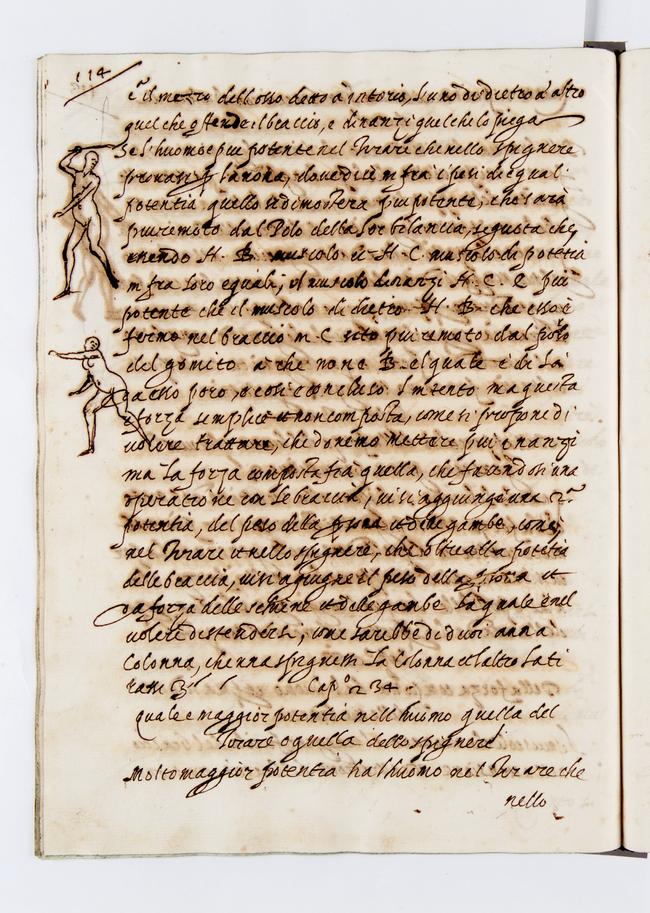 114
è il mezzo dell'osso detto aiutorio, l'uno di dietro a altro
quel che offende il braccio, e dinanzi quel che lo piega
Se l'huomo è piu potente nel tirare che nello spignere
provasi p la nona, dove dice infra i pesi di equal
potentia quello si dimostera piu potente, che sara
piu remoto dal Polo della lor bilancia, seguita che
essendo H. B. muscolo et H. C. muscolo di potetia
infra loro eguali, il muscolo dinanzi H. C. e piu
potente che il muscolo di dietro H B che esso è
fermo nel braccio in C sito piu remoto dal polo
del gomito a che no ne B. el quale è di la
da esso polo, e cosi è concluso l'intento ma questa
è forza semplice et non composta, come si propone di
volere trattare, che dovemo mettere piu inanzi
ma la forza composta fia quella, che facendosi una
operatione con le braccia, vi si aggiungie una 2.ª
potentia, del peso della psona et delle gambe, come
nel tirare et nello spignere, che oltre alla potetia
delle braccia, vi si agiugne il peso della psona et
la forza delle schiene et delle gambe la quale è nel
volere distendersi, come sarebbe di duoi an una
Colonna, che una spignessi la Colonna et l'altro la ti
rassi Cap.º 234.
quale e maggior potentia nell huomo quella del
tirare o quella dello spignere
Molto maggior potentia ha l'huomo nel tirare che
nello